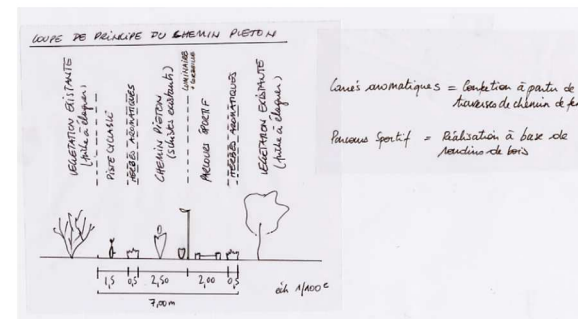 COUPE DE PRINCIPE DU CHEMIN PIETON
VEGETATION EXISTANTE
(friche à élaguer)
PISTE CYCLABLE
HERBES AROMATIQUES
CHEMIN PIÉTON
(schistes existants)
LUMINAIRE
PARCOURS SPORTIF
HERBES AROMATIQUES
VEGETATION EXISTANTE
(friche à élaguer)
1,5
0,5
2,50
2,00
0,5
7,00m
éch 1/100e
Carrés aromatiques = Confection à partir de
traverses de chemin de fer
Parcours Sportif = Réalisation à base de
rondins de bois